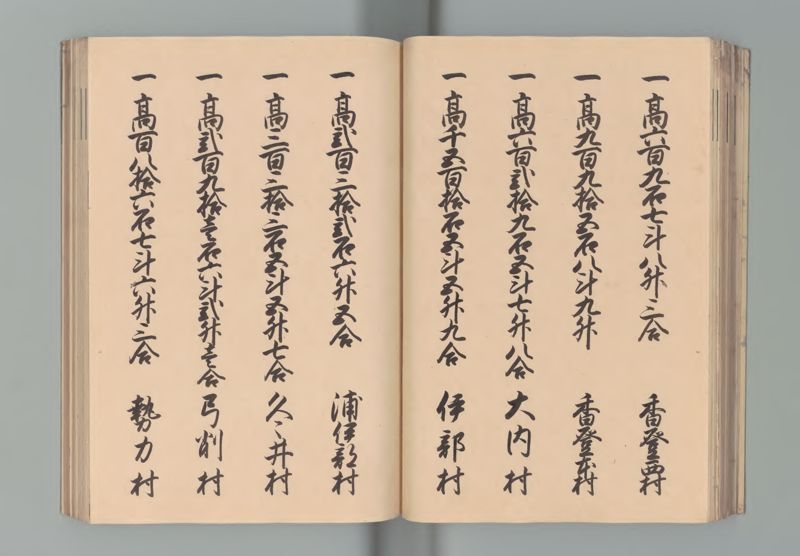 一 高六百九石七斗八升三合 香登西村
一 高九百九拾五石八斗九升 香登本村
一 高六百弐拾九石五斗七升八合 大内村
一 高千五百拾石五斗五升九合 伊部村
一 高弐百三拾弐石六升五合 浦伊部村
一 高三百三拾三石五斗五升七合 久々井村
一 高弐百九拾壱石六斗弐升壱合 弓削村
一 高百八拾六石七斗六升三合 勢力村